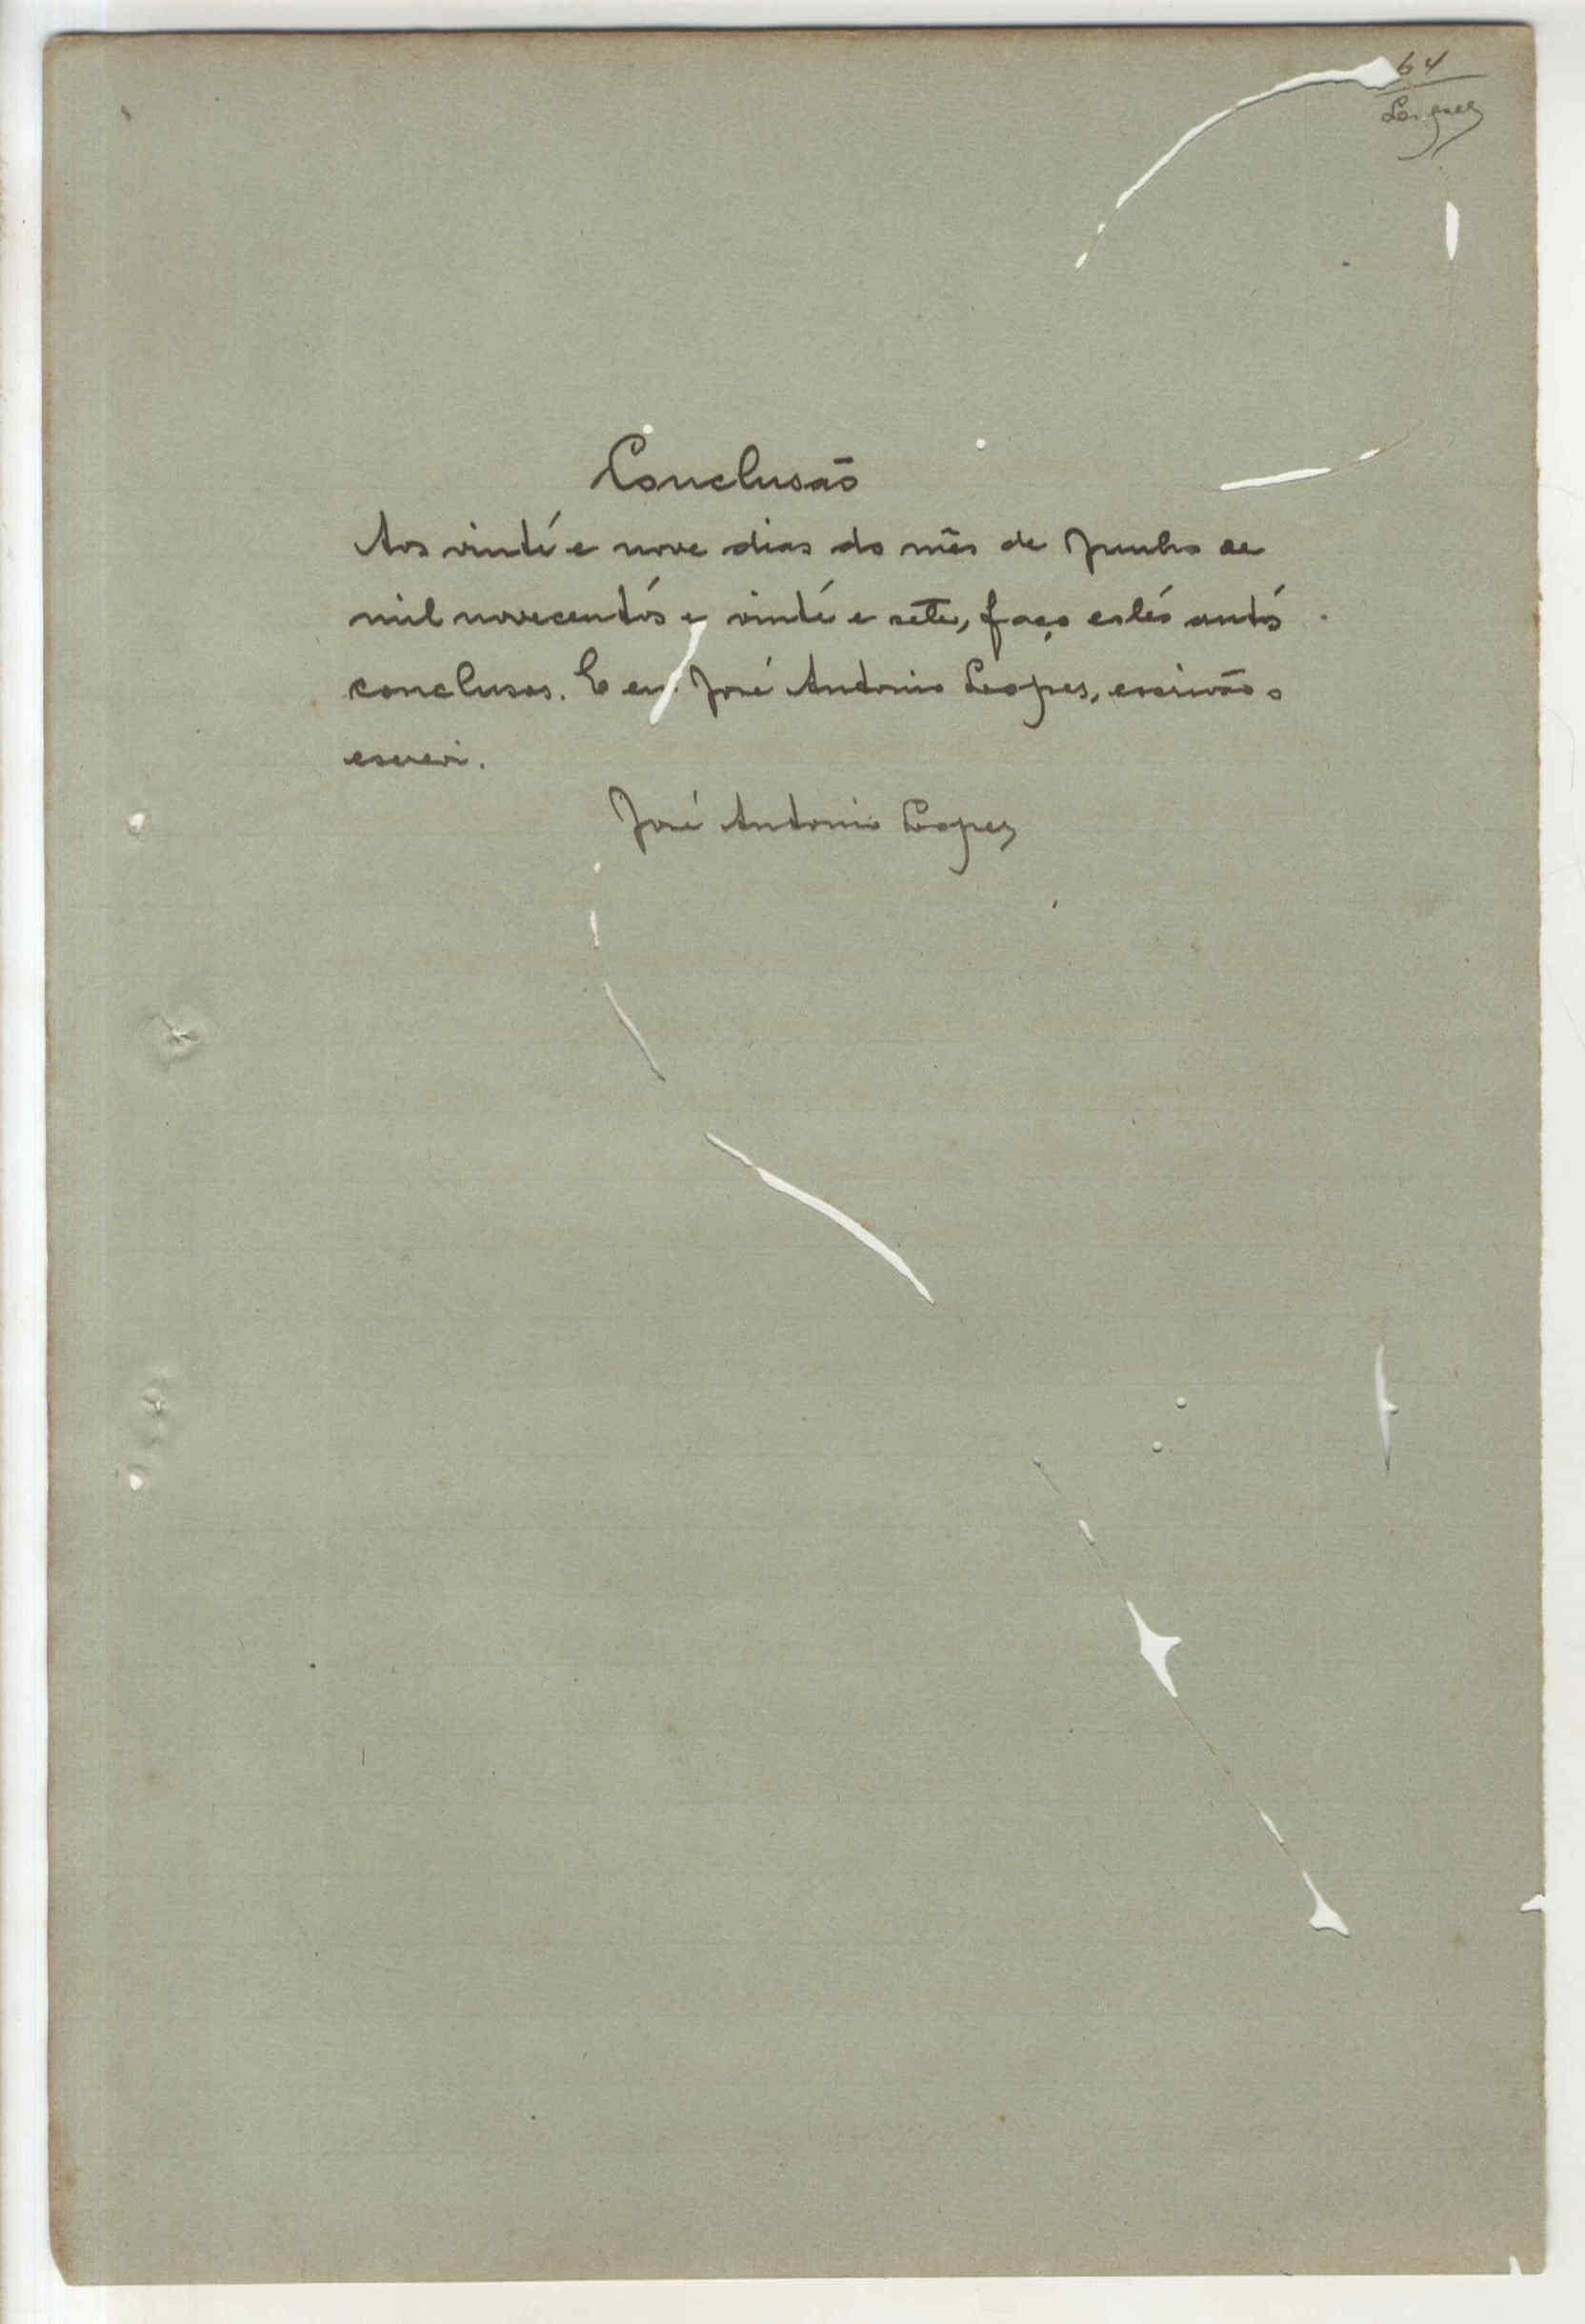 64
Lopes
Conclusão
Aos vinte e nove dias do mês de Junho de
mil novecentos e vinte e sete, faço estes autos
conclusos. E eu José Antonio Lopes, escrivão o
escrevi.
José Antonio Lopes